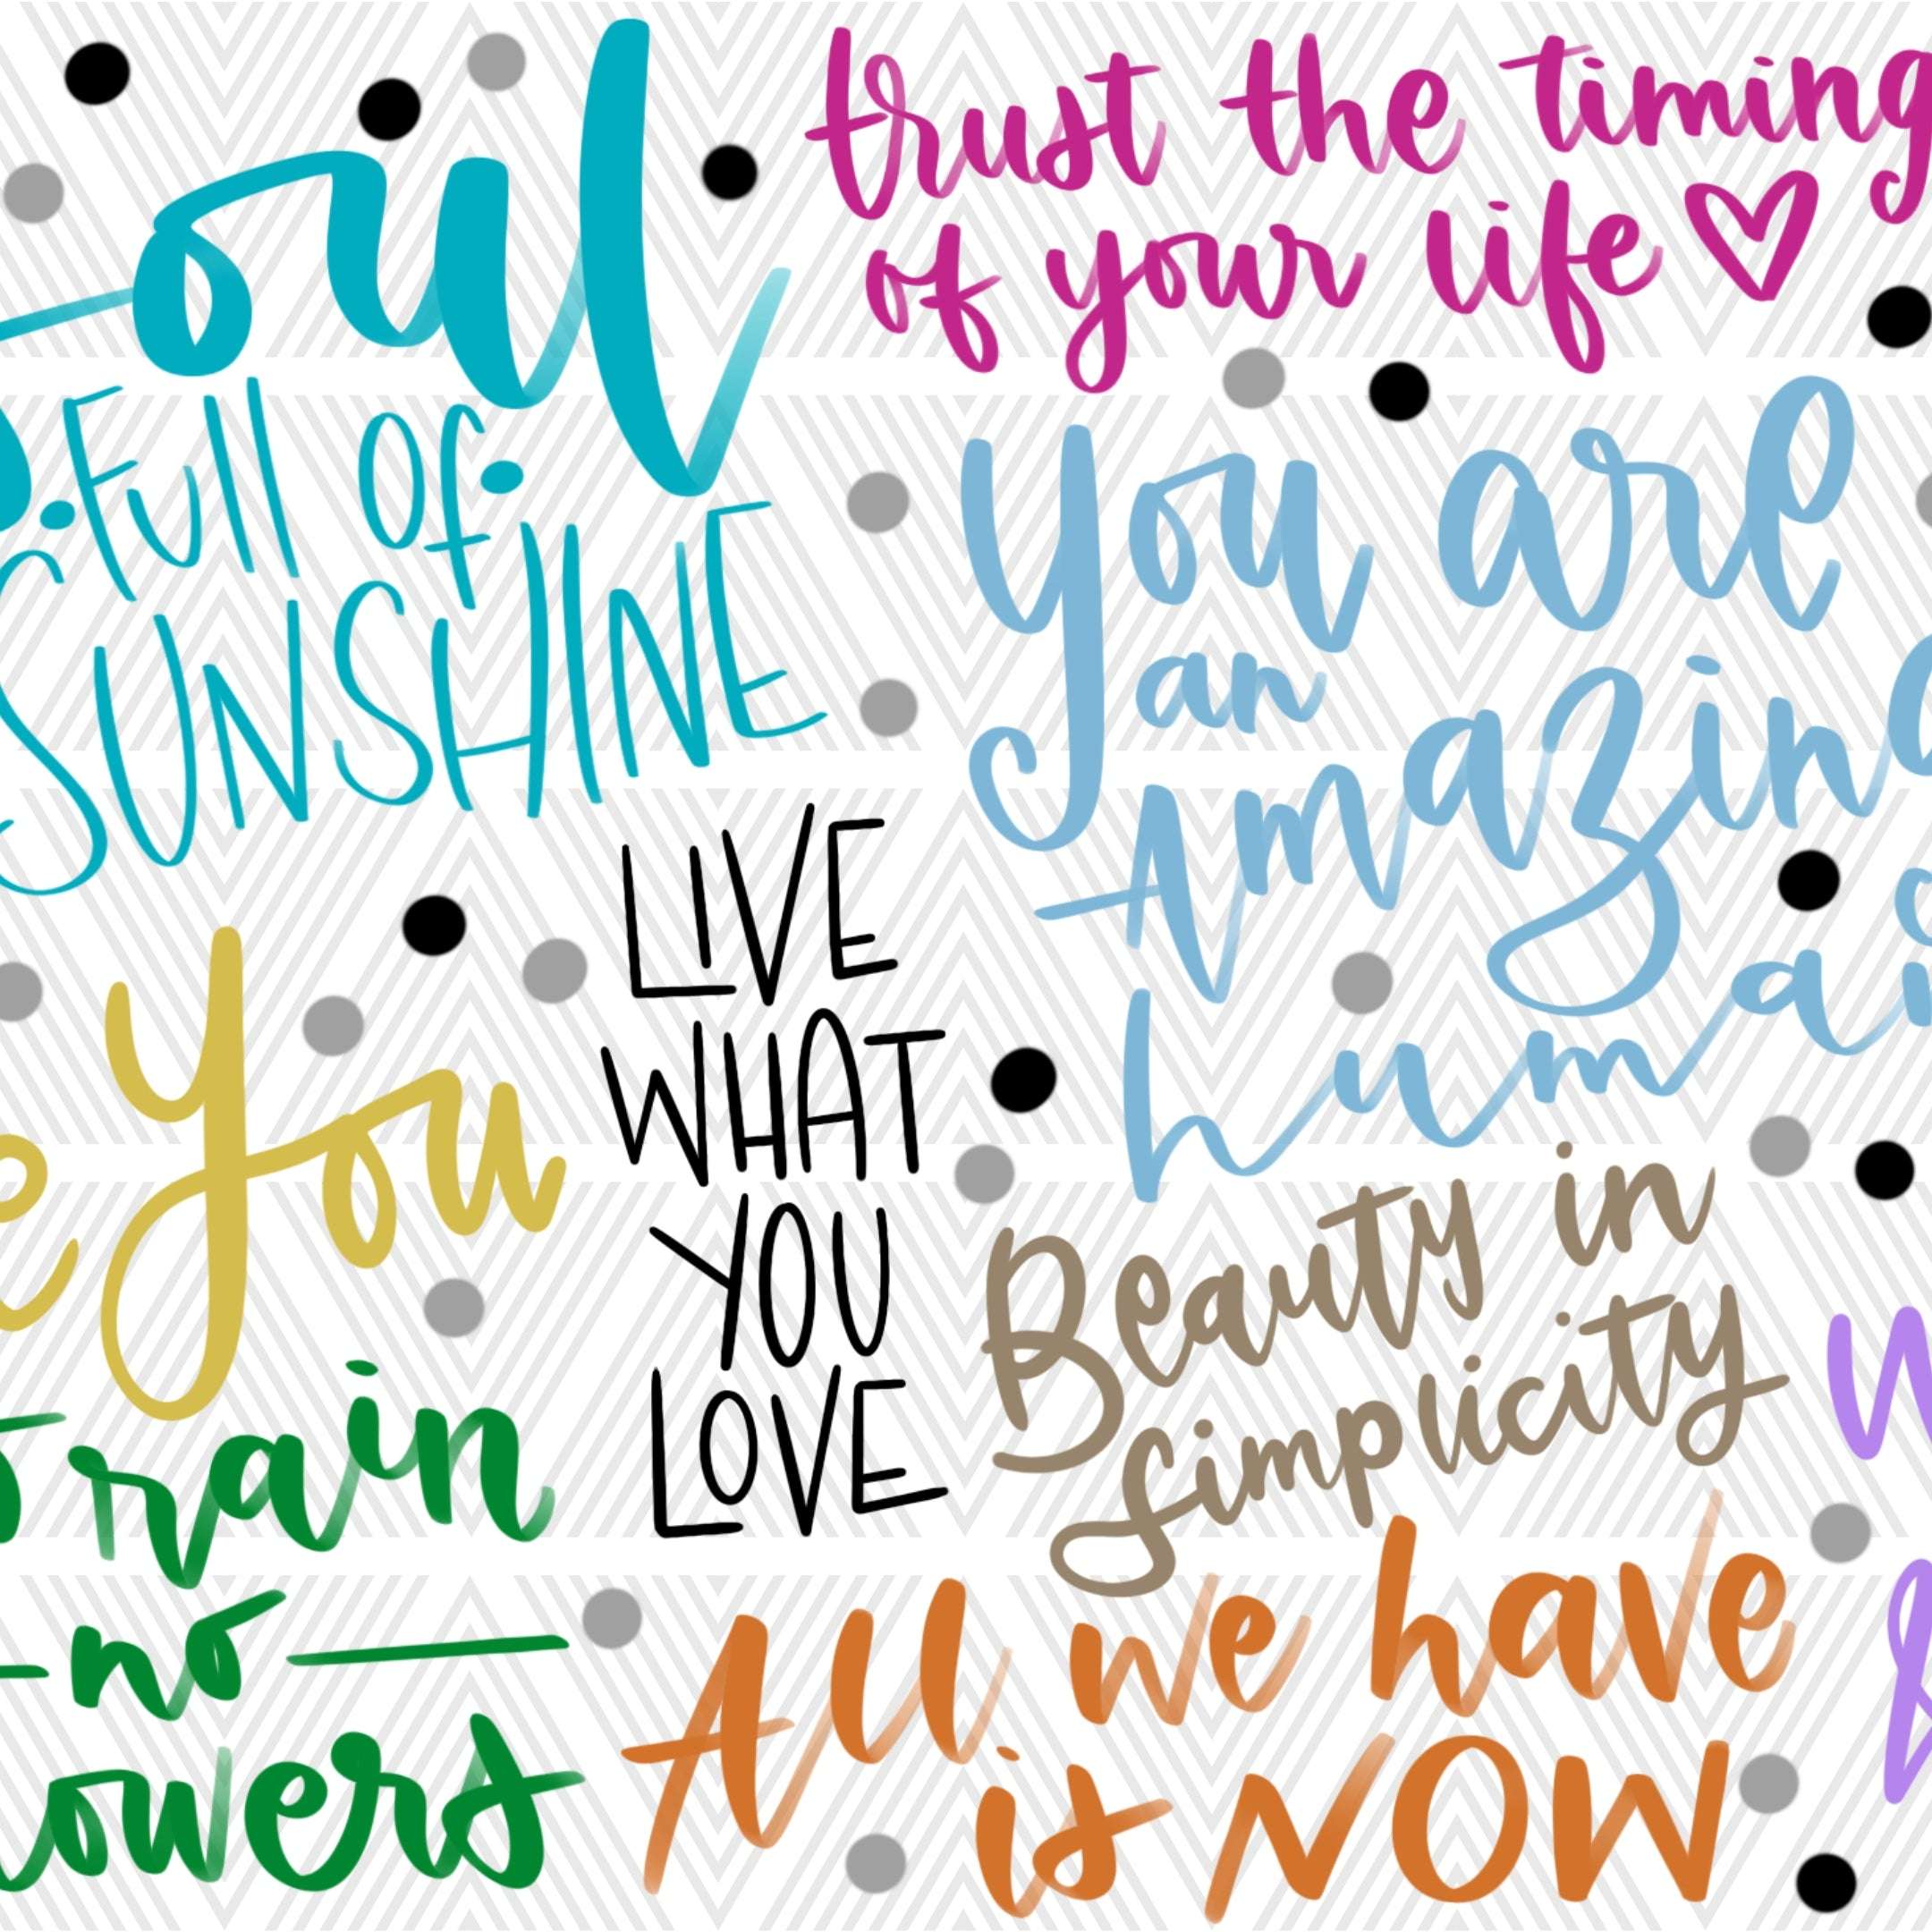 oul
full of
SUNSHINE
trust the timing
of your life
you are
an
Amazing
human
LIVE
WHAT
YOU
LOVE
e you
Beauty in
simplicity
rain
no
owers
All we have
is NOW